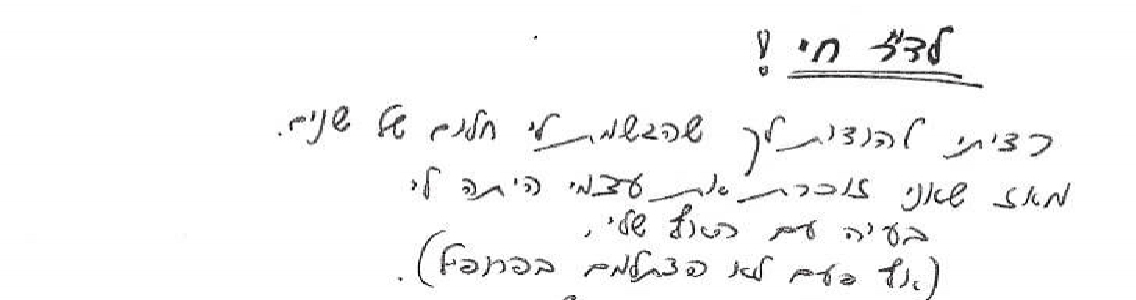 לד״ר חי !
רציתי להודות לך שהגשמת לי חלום של שנים.
מאז שאני זוכרת את עצמי היתה לי
בעיה עם האף שלי,
(אף פעם לא הצטלמתי בפרופיל).